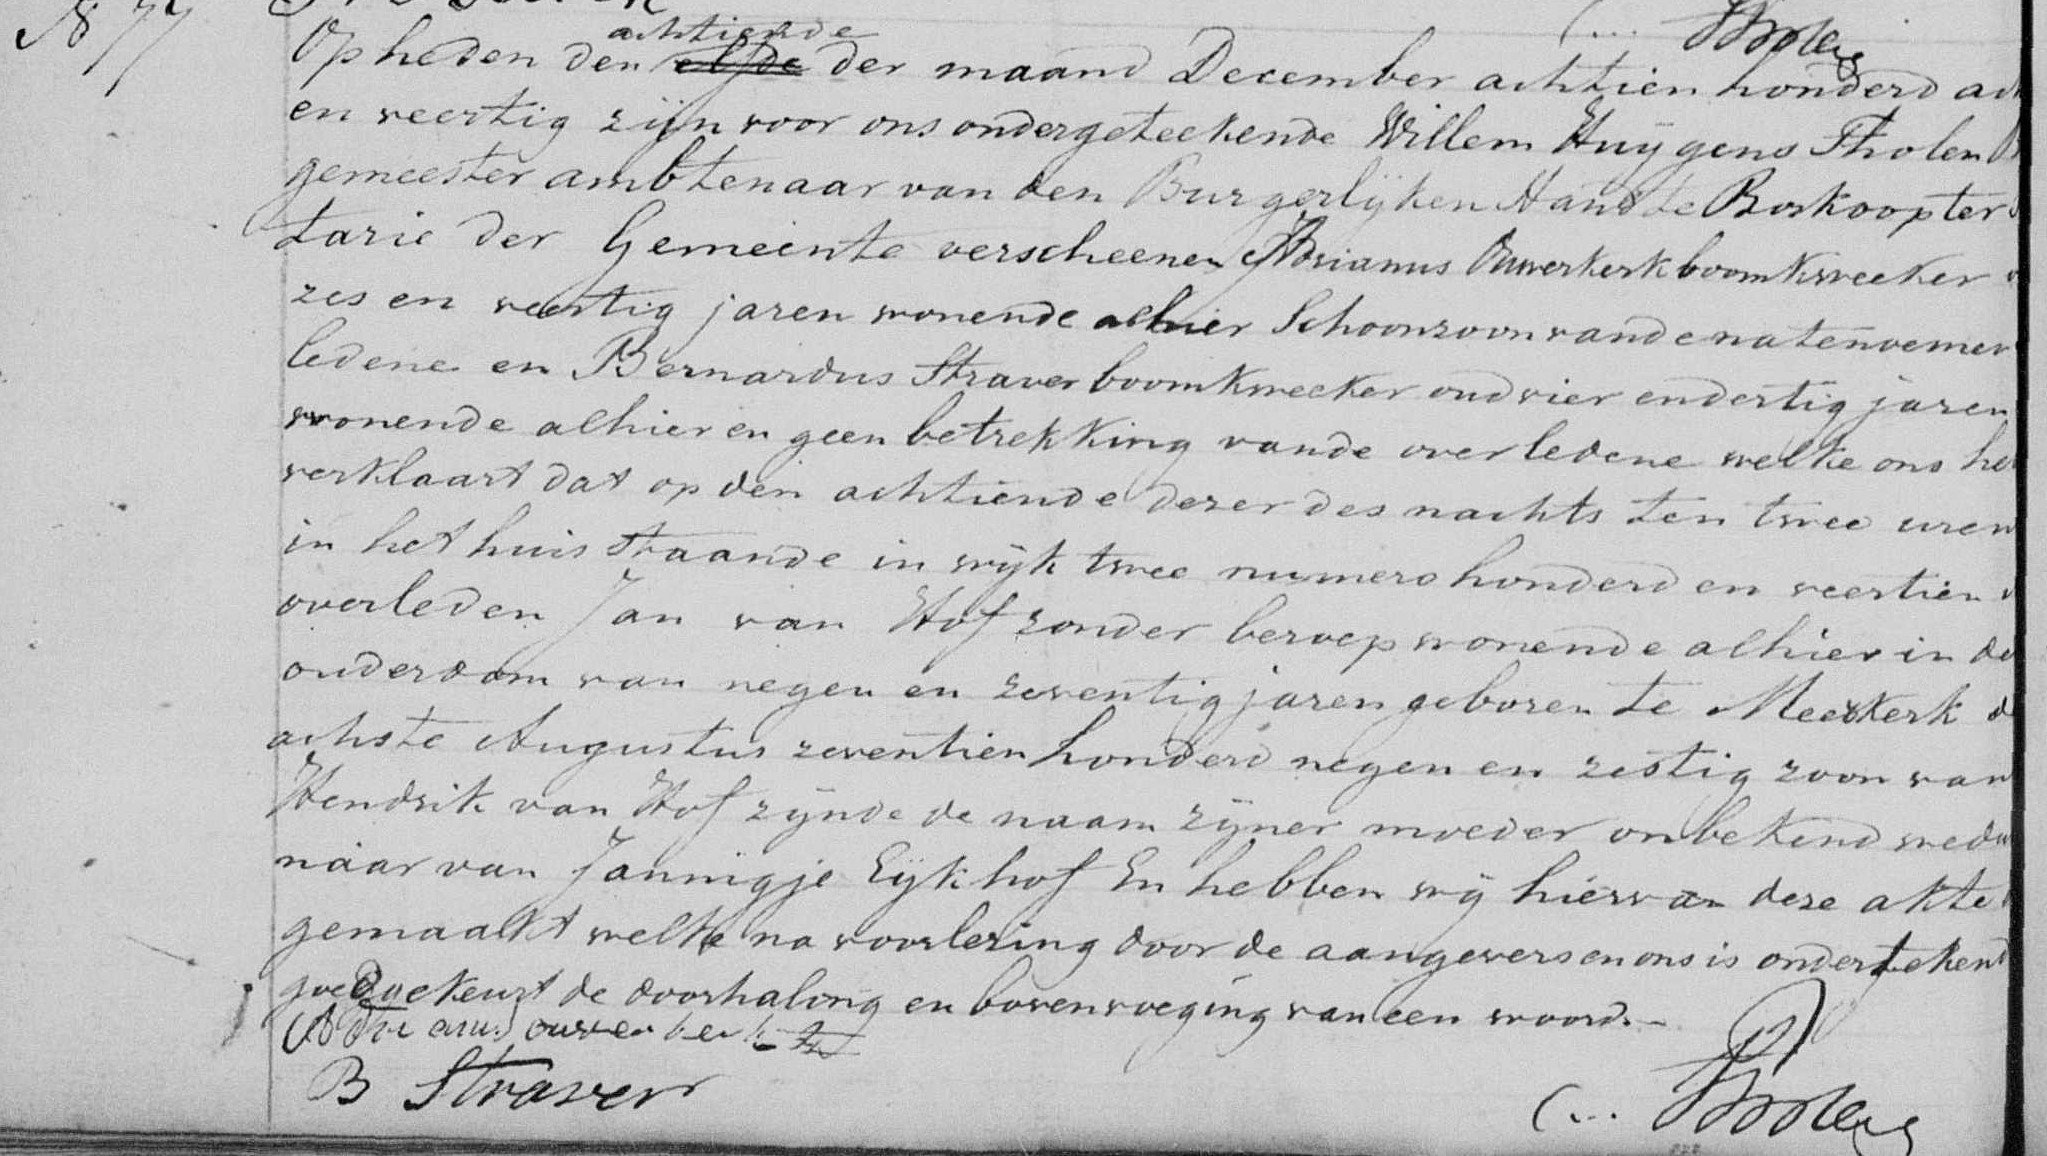 N 77
achtiende
Op heden den elfde der maand December achtien honderd ach
en veertig zijn voor ons ondergeteekende Willem Huijgens Tholen B
gemeester ambtenaar van den Burgerlijken Stand te Boskoop ter
tarie der Gemeente verscheenen Adrianus Ouwerkerk boomkweeker
zes en veertig jaren wonende alhier Schoonzoon vande natenoemen
ledene en Bernardus Straver boomkweeker oud vier en dertig jaren
wonende alhier en geen betrekking vande overledene welke ons he
verklaart dat op den achtiende dezer des nachts ten twee uren
in het huis staande in wijk twee numero honderd en veertien
overleden Jan van Hof zonder beroep wonende alhier in de
ouderdom van negen en zeventig jaren geboren te Meerkerk d
achste Augustus zeventien honderd negen en zestig zoon van
Hendrik van Hof zijnde de naam zijner moeder onbekend wedu
naar van Jannigje Eijkhof En hebben wij hiervan deze akte
gemaakt welke na voorlezing door de aangevers en ons is ondertekend
goedgekeurt de doorhaling en bovenvoeging van een woord.-
Adrianus ouwerkerk
B Straver